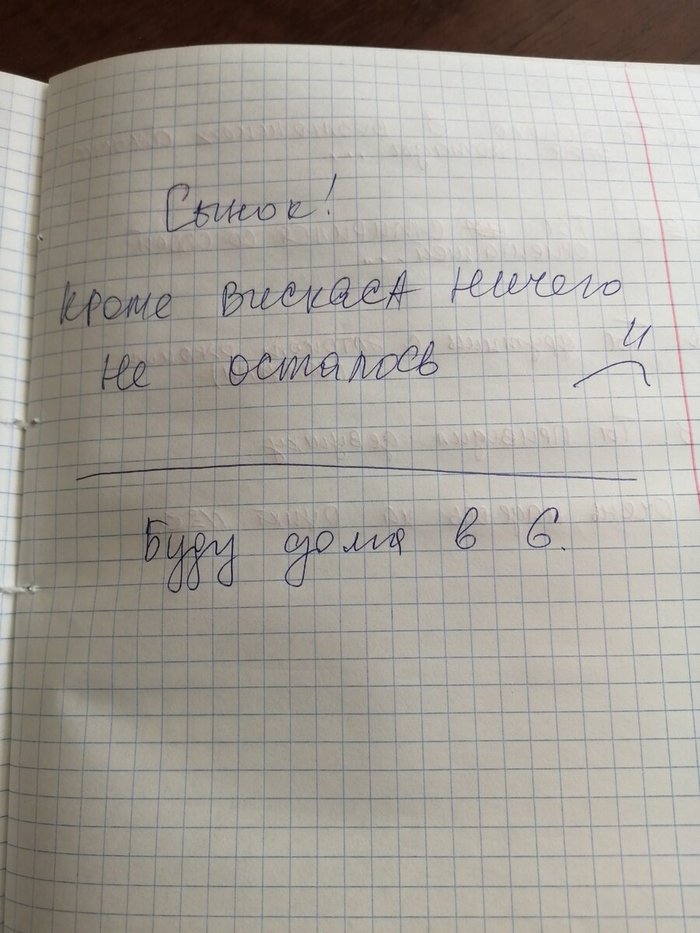 Сынок!
кроме вискаса ничего
не осталось
Буду дома в 6.